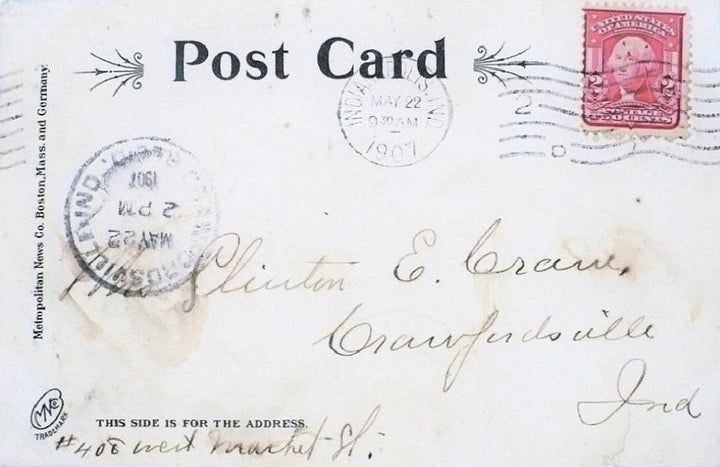 Post Card
UNITED STATES
OF AMERICA
2 2
TWO CENTS
INDIANAPOLIS, IND.
MAY 22
930AM
1907
2
D
Metropolitan News Co. Boston, Mass. and Germany.
CRAWFORDSVILLE, IND. REC'D.
MAY 22
2 PM
1907
Clinton E. Crane,
Crawfordsville
Ind
MNCo
TRADEMARK
THIS SIDE IS FOR THE ADDRESS.
#408 west market St.